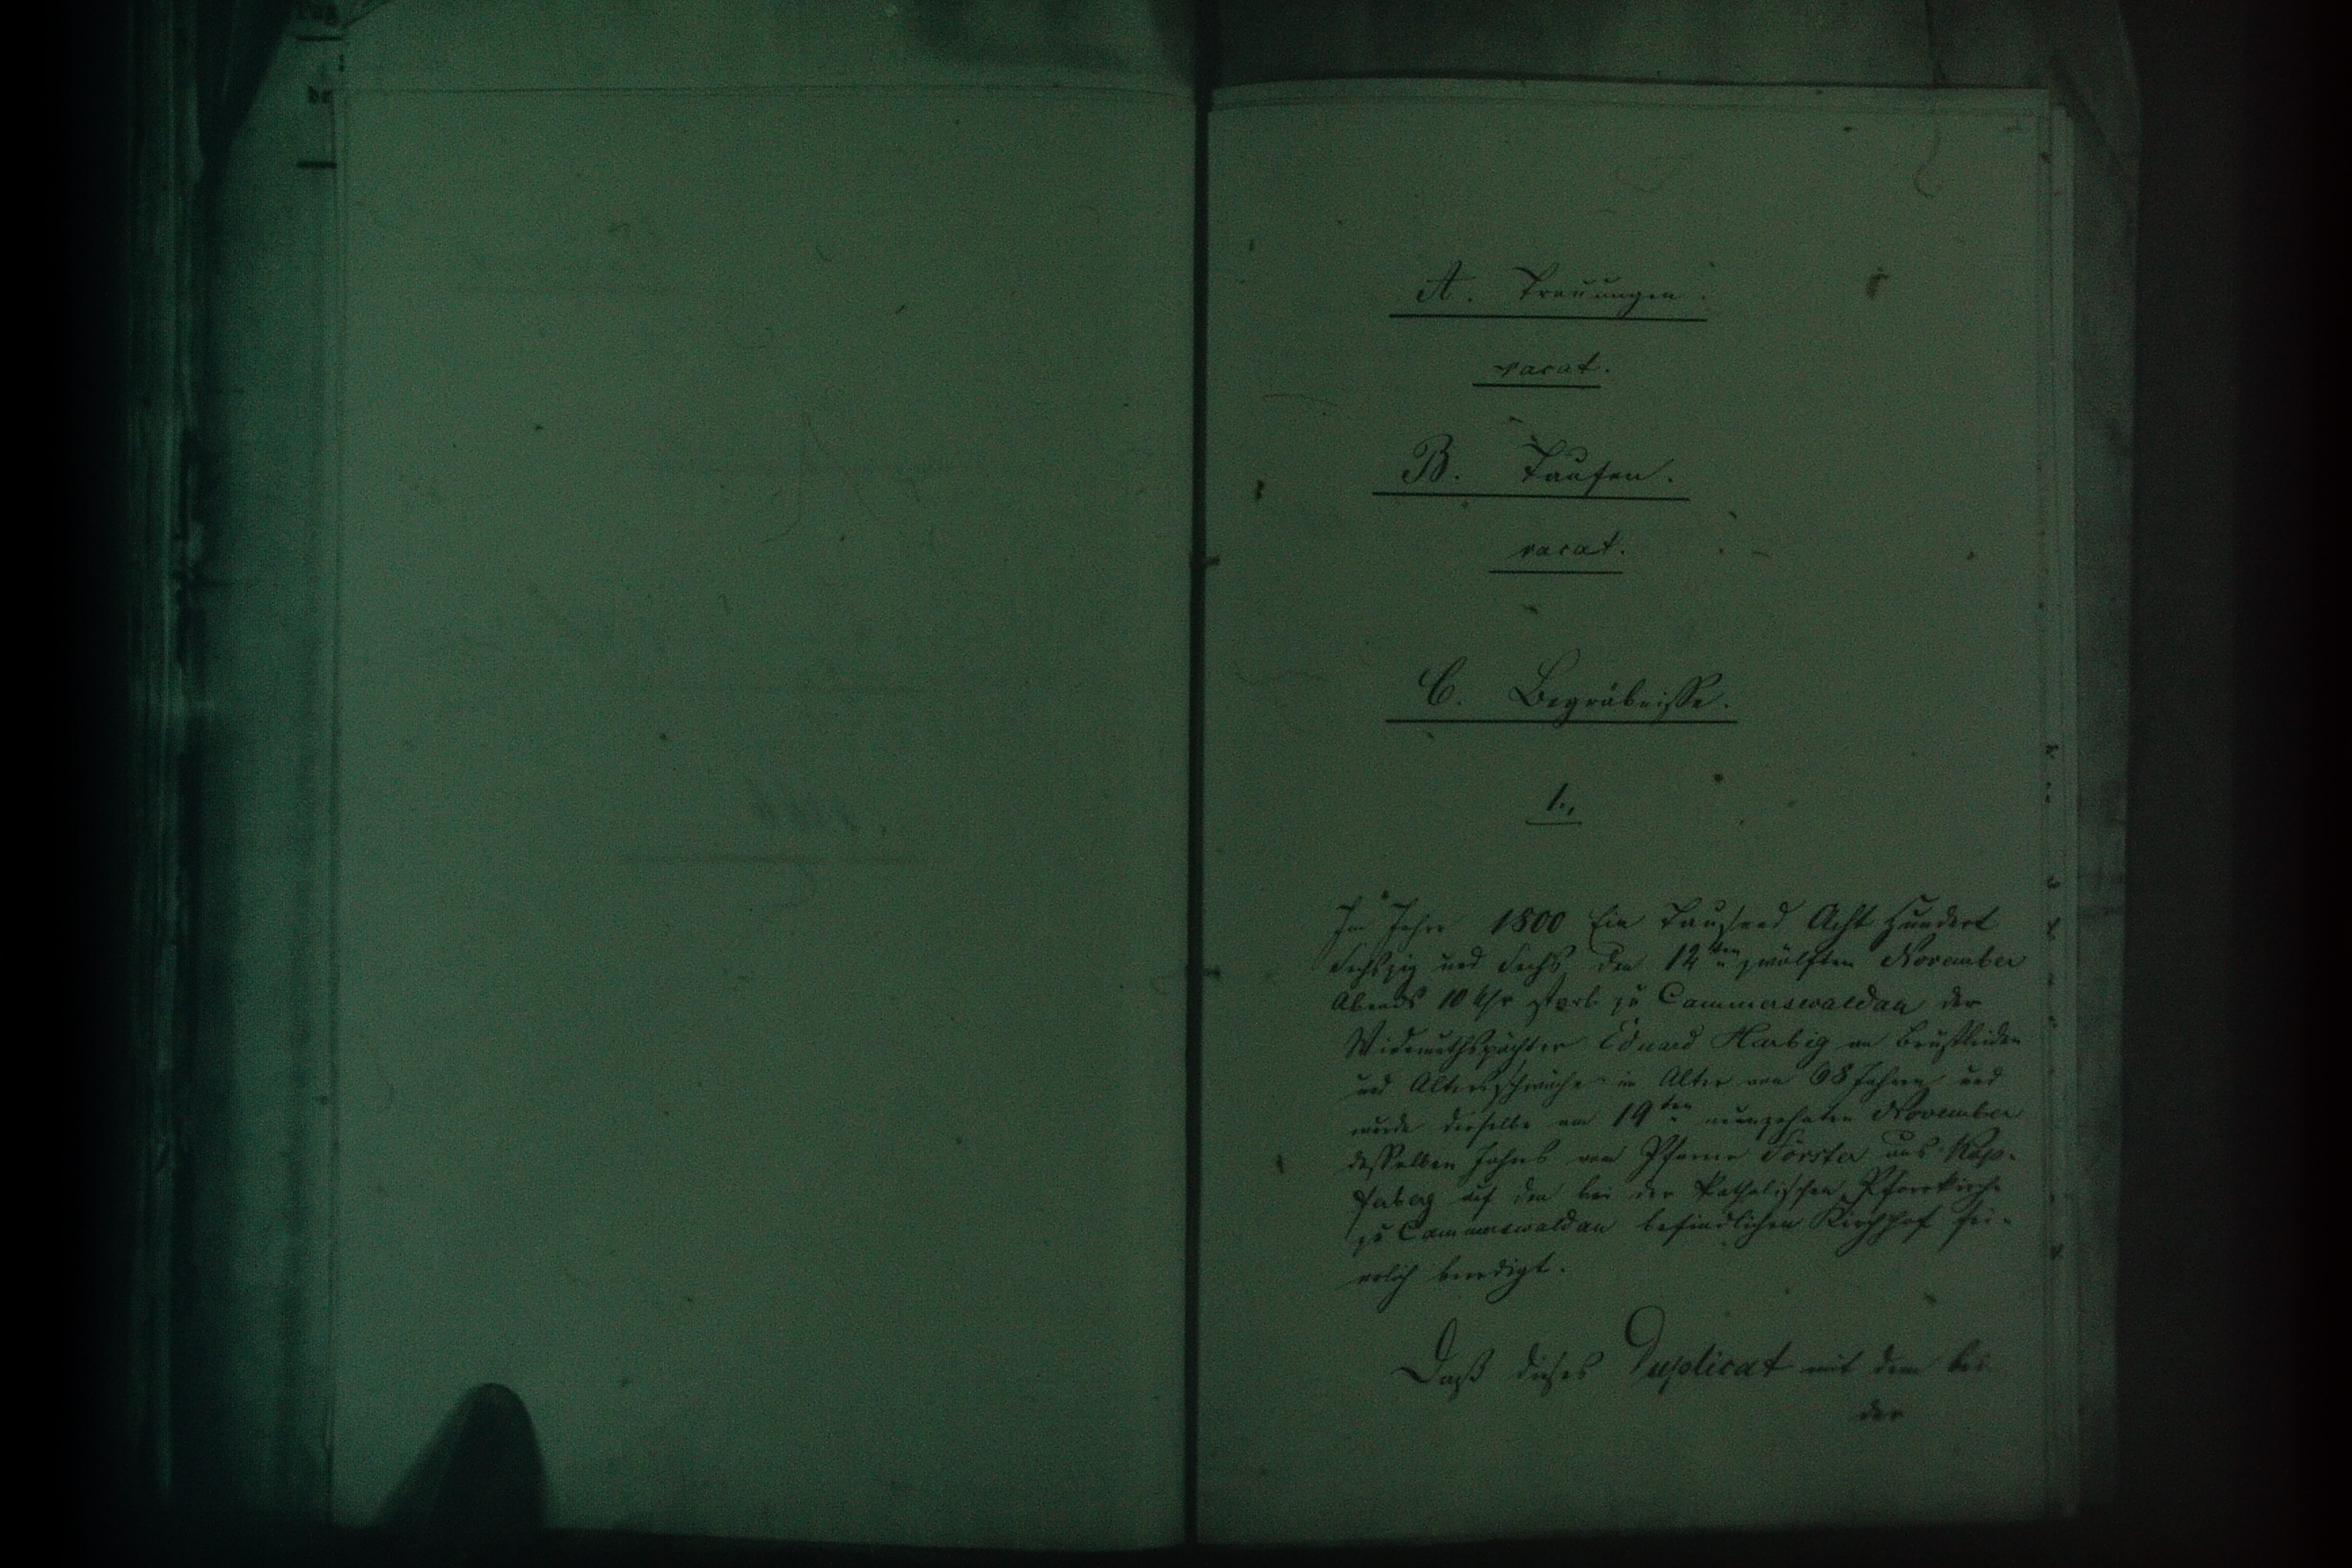 A. Trauungen.
vacat.
B. Taufen.
vacat.
C. Begräbnisse.
1.,
Im Jahre 1800 Ein Tausend Acht Hundert
Sechszig und Sechs den 12ten zwölften November
Abends 10 Uhr starb zu Cammerswaldau der
Widemuthspächter Eduard Harbig an Brustleiden
und Altersschwäche im Alter von 68 Jahren und
wurde derselbe am 19ten neunzehnten November
desselben Jahres vom Pfarrer Förster aus Kup-
ferberg auf dem bei der katholischen Pfarrkirche
zu Cammerswaldau befindlichen Kirchhof fei-
erlich beerdigt.
Daß dieses Duplicat mit dem bei
der